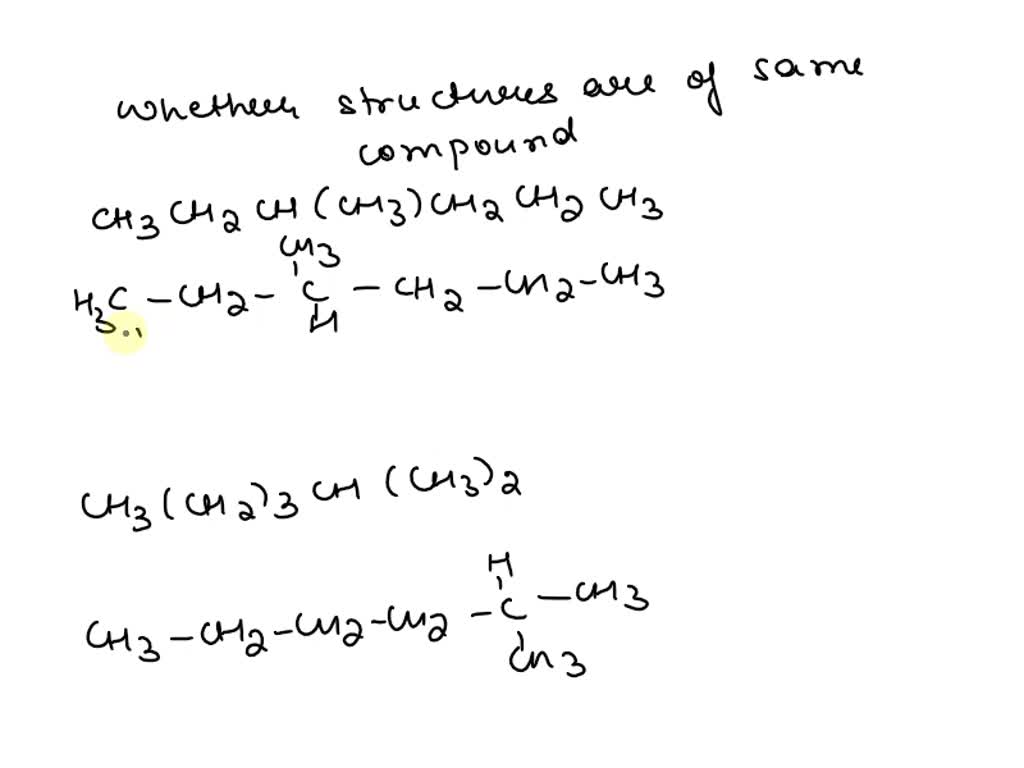 whether structures are of same
compound
CH3 CH2 CH (CH3) CH2 CH2 CH3
CH3
H3C - CH2 - C - CH2 - CH2 - CH3
H
CH3 (CH2)3 CH (CH3)2
H
CH3 - CH2 - CH2 - CH2 - C - CH3
CH3